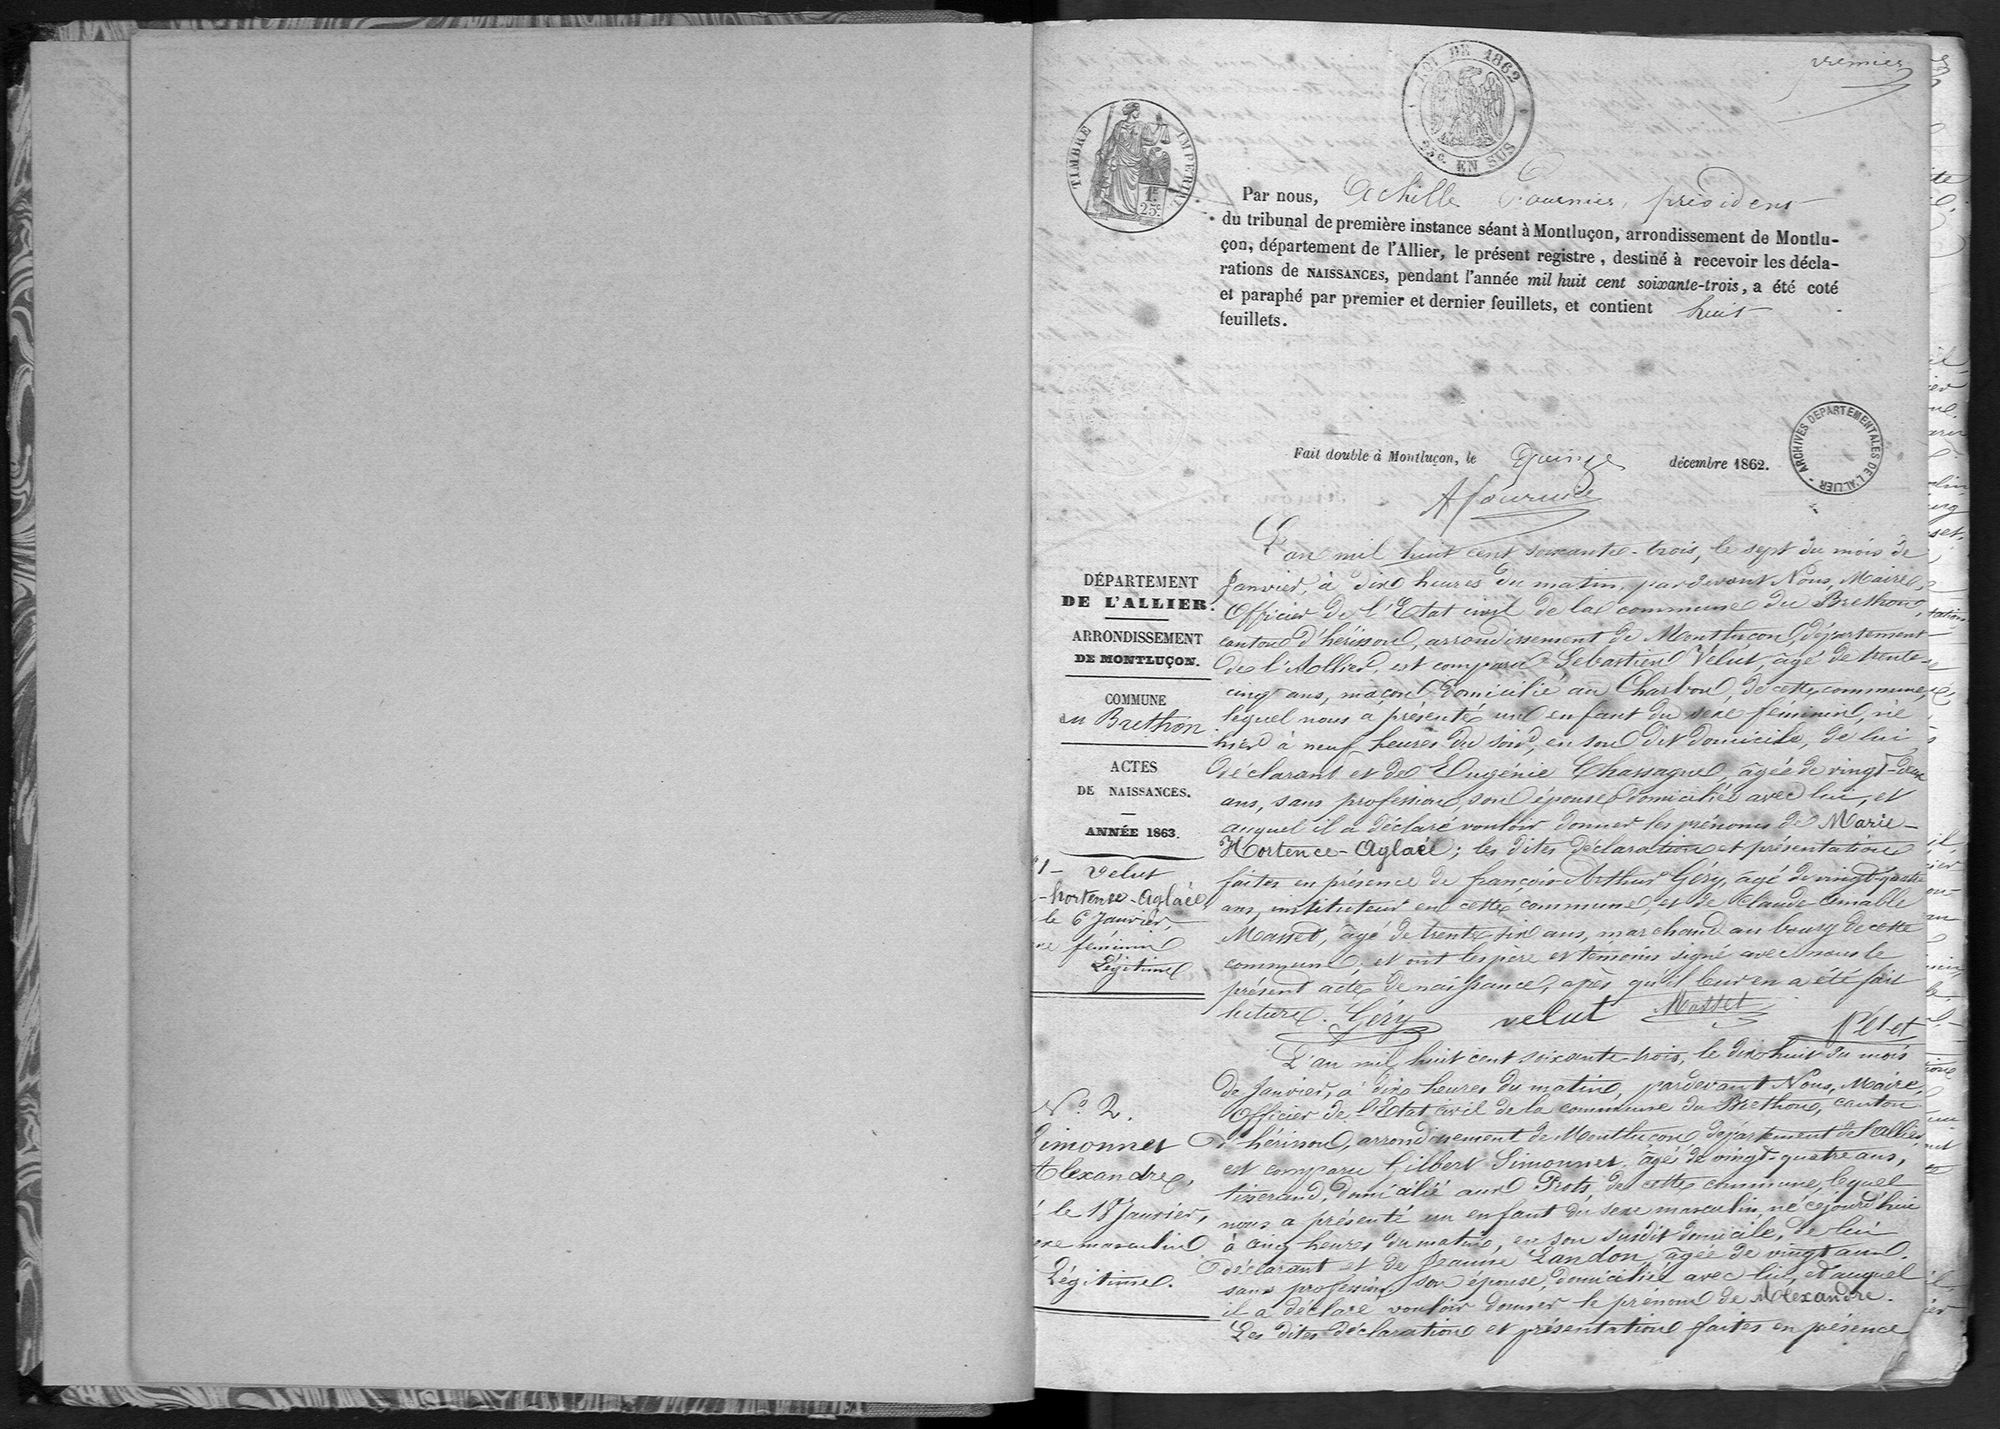 premier
LOI DE 1862
25c. EN SUS
TIMBRE IMPERIAL
1F
25c
Par nous, Achille Fournier, président
du tribunal de première instance séant à Montluçon, arrondissement de Montlu-
çon, département de l'Allier, le présent registre, destiné à recevoir les décla-
rations de NAISSANCES, pendant l'année mil huit cent soixante-trois, a été coté
et paraphé par premier et dernier feuillets, et contient huit
feuillets.
ARCHIVES DÉPARTEMENTALES DE L'ALLIER
Fait double à Montluçon, le quinze décembre 1862.
A fournier
DÉPARTEMENT
DE L'ALLIER.
ARRONDISSEMENT
DE MONTLUÇON.
COMMUNE
du Brethon
ACTES
DE NAISSANCES.
ANNÉE 1863.
1 – Velut
-hortense-Aglaée
le 6 Janvier,
féminin
Légitime
L'an mil huit cent soixante-trois, le sept du mois de
Janvier, à dix heures du matin, pardevant Nous, Maire,
Officier de l'Etat civil de la commune du Brethon,
canton d'hérisson, arrondissement de Montluçon, département
de l'Allier est comparu Sebastien Velut, âgé de trente-
cinq ans, maçon, domicilié au Charbon, de cette commune,
lequel nous a présenté un enfant du sexe féminin, né
hier à neuf heures du soir, en son dit domicile, de lui
déclarant et de Eugénie Chassagne, âgée de vingt-deux
ans, sans profession, son épouse domiciliée avec lui, et
auquel il a déclaré vouloir donner les prénoms de Marie-
Hortence-Aglaée; les dites déclaration et présentation
faites en présence de françois-Arthur Géry, âgé de vingt-quatre
ans, instituteur en cette commune, et de Claude Amable
Masset, âgé de trente six ans, marchand au bourg de cette
commune, et ont les père et témoins signé avec nous le
présent acte de naissance, après qu'il leur en a été fait
lecture. Géry velut Masset Petet
N° 2.
Simonnet
Alexandre,
le 18 Janvier,
sexe masculin
Légitime.
L'an mil huit cent soixante-trois, le dix huit du mois
de Janvier, à dix heures du matin, pardevant Nous, Maire,
Officier de l'Etat civil de la commune du Brethon, canton
d'hérisson, arrondissement de Montluçon, département de l'Allier
est comparu Gilbert Simonnet, âgé de vingt-quatre ans,
tisserand, domicilié aux Prots de cette commune, lequel
nous a présenté un enfant du sexe masculin, né cejourd'hui
à cinq heures du matin, en son susdit domicile, de lui
déclarant et de Jeanne Landon, âgée de vingt ans,
sans profession son épouse, domiciliée avec lui, et auquel
il a déclaré vouloir donner le prénom de Alexandre.
Les dites déclaration et présentation faites en présence